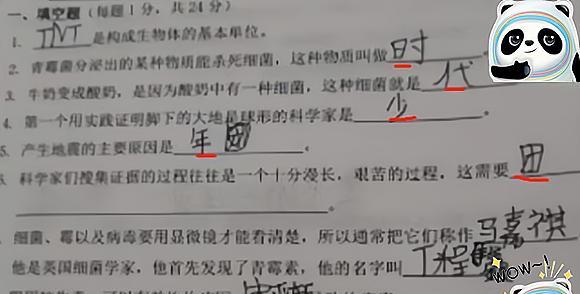 一、填空题（每题1分，共24分）
1. TNT是构成生物体的基本单位。
2. 青霉菌分泌出的某种物质能杀死细菌，这种物质叫做时。
3. 牛奶变成酸奶，是因为酸奶中有一种细菌，这种细菌就是代
4. 第一个用实践证明脚下的大地是球形的科学家是少。
5. 产生地震的主要原因是年团。
6. 科学家们搜集证据的过程往往是一个十分漫长，艰苦的过程，这需要团
。
细菌、霉以及病毒要用显微镜才能看清楚，所以通常把它们称作马嘉祺
他是英国细菌学家，他首先发现了青霉素，他的名字叫丁程鑫
WOW~!